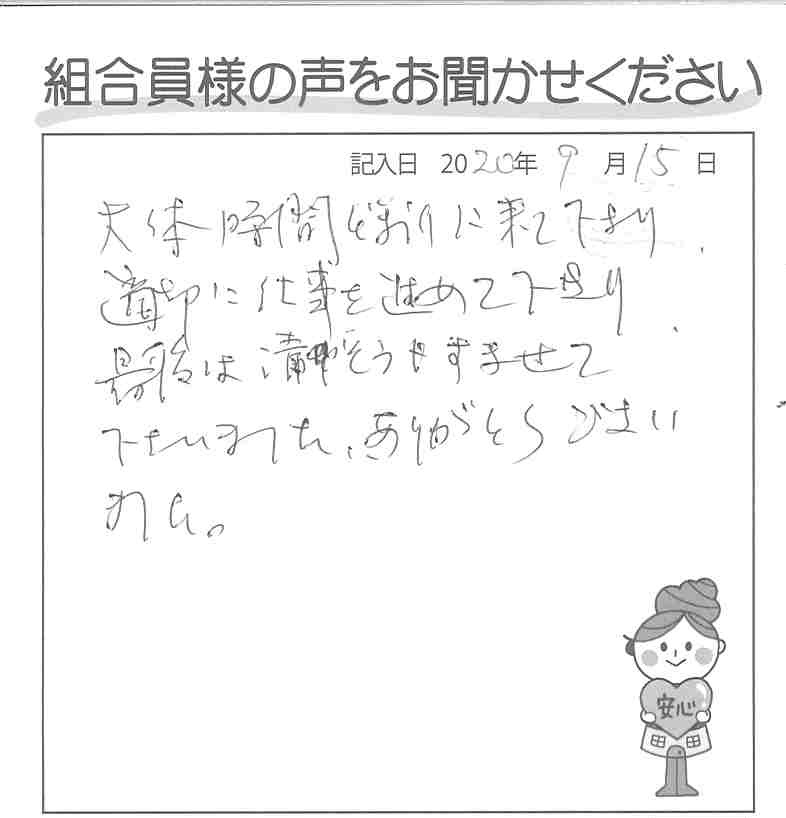 組合員様の声をお聞かせください
記入日 2020年 9月15日
大体時間どおりに来て下さり、
適切に仕事を進めて下さり、
最後は清そうもすませて
下さいました、ありがとうございま
した。
安心